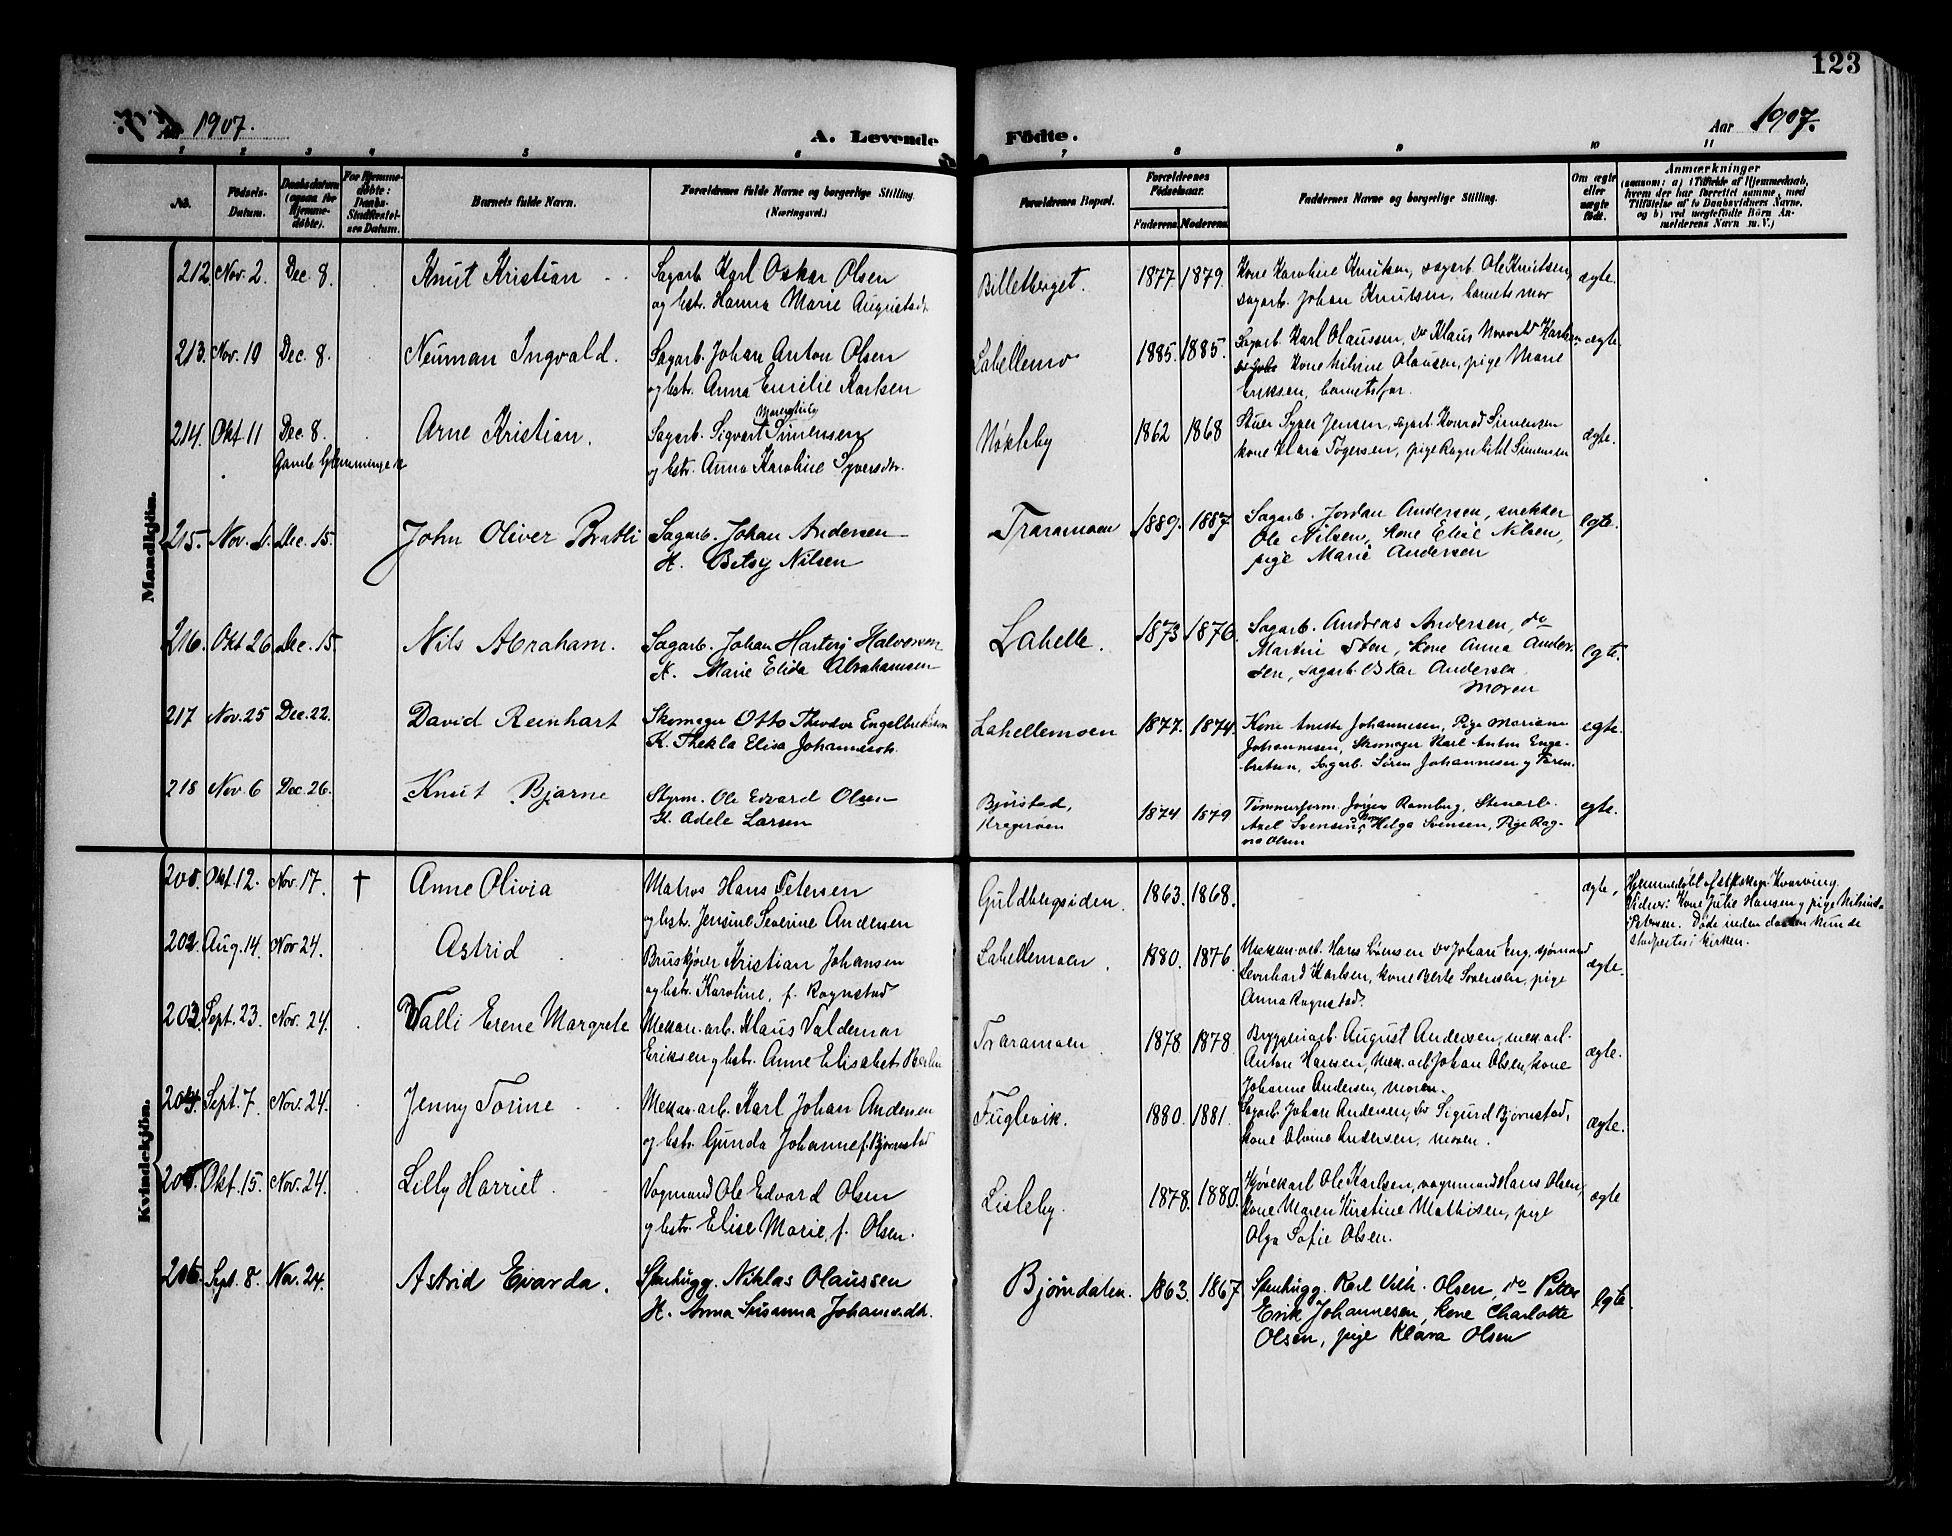 123
Aar 1907.
A. Levende
Födte.
Aar 1907.
1 2 3 4 5 6 7 8 9 10 11
No.
Födsels-
Datum.
Daabsdatum
(ogsaa for
Hjemme-
døbte).
For Hjemme-
døbte:
Daabs-
Stadfæstel-
ses Datum.
Barnets fulde Navn.
Forældrenes fulde Navne og borgerlige Stilling.
(Næringsvei.)
Forældrenes Bopæl.
Forældrenes
Födselsaar.
Faderens. Moderens.
Faddernes Navne og borgerlige Stilling.
Om ægte
eller
uægte
født.
Anmærkninger
(saasom: a) i Tilfælde af Hjemmedaab,
hvem der har forrettet samme, med
Tilföielse af to Daabsvidners Navne,
og b) ved uægtefödte Börn An-
melderens Navn m. V.)
Mandkjön.
212 Nov. 2. Dec. 8. Knut Kristian Sagarb. Karl Oskar Olsen
og hstr. Hanna Marie Augustadtr.
Billetberget. 1877 1879. Kone Karoline Knutsen, sagarb. Ole Knutsen,
sagarb. Johan Knutsen, barnets mor
ægte.
213. Nov. 19 Dec. 8. Neuman Ingvald. Sagarb. Johan Anton Olsen
og hstr. Anna Emilie Karlsen
Lahellemo 1885. 1885. Sagarb. Karl Olaussen, do Klaus Karlsen
Kone Milvine Olausen, pige Marie
Eriksen, barnets far.
ægte.
214. Okt 11 Dec. 8.
Gamle Glemminge k
Arne Kristian. Sagarb. Sigvart Simensen
og hstr. Anna Karoline Syversdtr.
Nøkleby 1862 1868 Stuer Syver Jensen, sagarb. Konrad Simensen
kone Klara Tøgersen, pige Ragnhild Simensen
ægte.
215. Nov. 1. Dec. 15. John Oliver Bratli Sagarb. Johan Andersen
H. Betsy Nilsen
Traramoen 1889. 1887 Sagarb. Jordan Andersen, snekker
Ole Nilsen, Kone Elise Nilsen,
pige Marie Andersen
egte.
216. Okt 26 Dec. 15. Nils Abraham. Sagarb. Johan Hartvig Halvorsen
K. Marie Elida Abrahamsen
Lahelle. 1873 1876. Sagarb. Andreas Andersen, do
Martin Sten, Kone Anna Ander-
sen, sagarb. Oskar Andersen
Moren
egte.
217 Nov. 25 Dec. 22. David Reinhart Skomager Otto Theodor Engelbrektsen
K. Thekla Elisa Johannesdt.
Lahellemoen 1877. 1874. Kone Anette Johannesen, Pige Mariane
Johannesen, Skomager Karl Anton Enge-
bretsen, Sagarb. Søren Johannesen og Faren.
egte.
218 Nov. 6 Dec. 26. Knut Bjarne Styrm. Ole Edvard Olsen
K. Adele Larsen
Bjørstad,
Kragerøen
1874 1879 Tømmerform. Jørgen Ramberg, Stenarb.
Axel Svensen, Kone Helga Svensen, Pige Rag-
na Olsen
egte.
Kvindekjön.
201. Okt. 12. Nov. 17. † Anne Olivia Matros Hans Petersen
og hstr. Jensine Severine Andersen
Guldbergsiden. 1863. 1868. ægte, Hjemmedøbt af distr.skapr. Kvarving.
Vidner: Kone Julie Hansen og pige Milinda
Petersen. Døde inden daaben kunde
stadfestes i kirken.
202. Aug. 14. Nov 24. Astrid Bruskjører Kristian Johansen
og hstr. Karoline, f. Rognstad
Lahellemoen. 1880. 1876. Mekan. arb. Hans Sørensen do Johan Eng, sjømand
Leonhard Karlsen, kone Berte Sørensen, pige
Anna Rognstad.
ægte.
203. Sept. 23. Nov. 24. Valli Erene Margrete Mekan. arb. Klaus Valdemar
Eriksen og hstr. Anne Elisabet Karlsen
Traramoen 1878 1878 Bryggeriarb. August Andersen, mek. arb.
Anton Hansen, mek. arb. Johan Olsen, kone
Johanne Andersen, moren.
ægte.
204. Sept. 7. Nov. 24. Jenny Torine Mekan. arb. Karl Johan Andersen
og hstr. Gunda Johanne f. Bjørnstad
Fuglevik. 1880. 1881. Sagarb. Johan Andersen, do Sigurd Bjørnstad,
kone Olvine Andersen, moren.
ægte.
205. Okt. 15. Nov. 24. Lilly Harriet. Vognmand Ole Edvard Olsen
og hstr. Elise Marie, f. Olsen.
Lisleby. 1878. 1880. Kjørekarl Ole Karlsen, vognmand Hans Olsen,
kone Maren Kirstine Mathisen, pige
Olga Sofie Olsen.
ægte
206. Sept. 8. Nov. 24. Astrid Evarda. Stenhugg. Niklas Olaussen
H. Anna Susanna Johansdtr.
Bjørndalen. 1863. 1867. Stenhugg. Karl Vilh. Olsen, do Peter
Erik Johannesen, kone Charlotte
Olsen, pige Klara Olsen
egte.